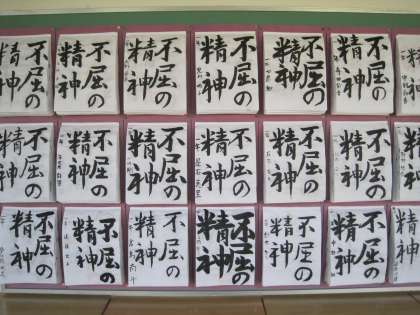 不屈の
精神
不屈の
精神
不屈の
精神
不屈の
精神
不屈の
精神
不屈の
精神
精神
不屈の
精神
不屈の
精神
不屈の
精神
不屈の
精神
不屈の
精神
不屈の
精神
精神
不屈の
精神
不屈の
精神
不屈の
精神
不屈の
精神
不屈の
精神
不屈の
精神
精神